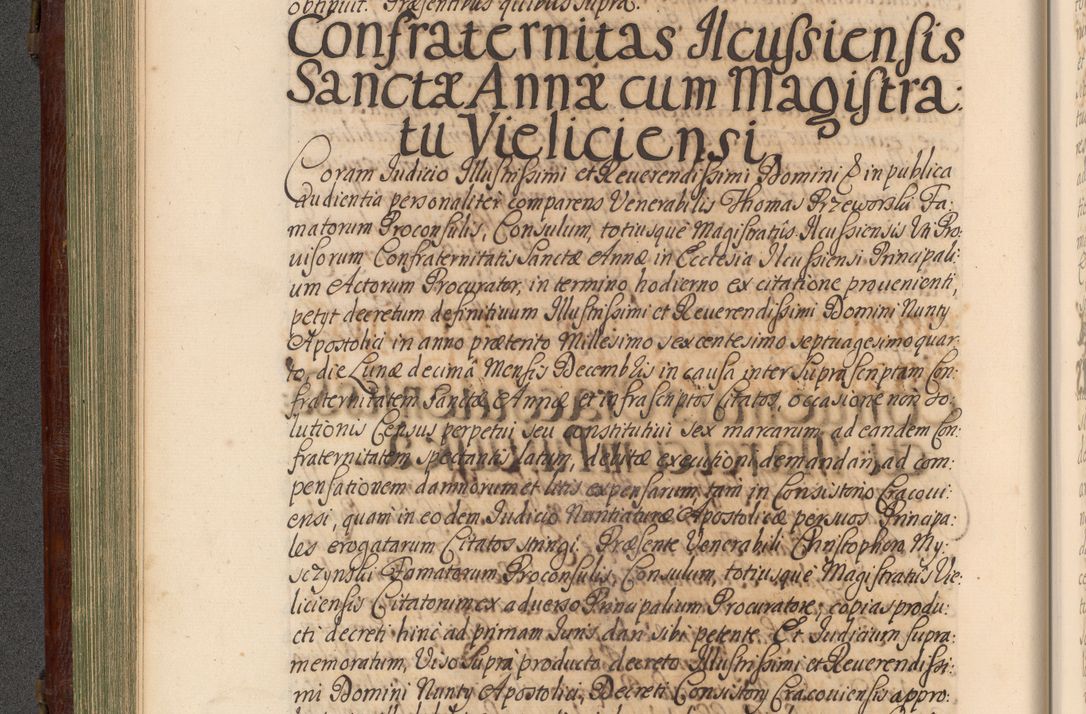 obtinuit. Præsentibus quibus supra.
Confraternitas Ilcussiensis
Sanctæ Annæ cum Magistra:
tu Vieliciensi,
Coram Iudicio Illustrissimi et Reuerendissimi Domini & in publica
audientia personaliter comparens Venerabilis Thomas Rzeworski Fa:
matorum Proconsulis, Consulum, totiusque Magistratûs Ilcussiensis Uti Pro:
uisorum Confraternitatis Sanctæ Annæ in Ecclesia Ilcussiensi Principali:
um Actorum Procurator, in termino hodierno ex citatione prouenienti,
petyt decretum definitiuum Illustrissimi et Reuerendissimi Domini Nunty
Apostolici in anno præterito Millesimo sexcentesimo septuagesimo quar:
to, die Lunæ decimâ Mensis Decembris in causa inter suprascriptam Con:
fraternitatem Sanctæ Annæ et infrascriptos Citatos, occasione non so:
lutionis Census perpetui seu constitutiui sex marcarum ad eandem Con:
fraternitatem spectantis latum, debitæ executioni demandari, ad com:
pensationem damnorum et litis expensarum, tam in Consistorio Cracoui:
ensi, quam in eodem Iudicio Nuntiaturæ Apostolicæ per suos Principa:
les erogatarum Citatos stringi. Præsente Venerabili Christophoro My:
sczynski Famatorum Proconsulis, Consulum, totiusque Magistratûs Vie:
liciensis Citatorum ex aduerso Principalium Procuratore, copias produ:
cti decreti hinc ad primam Iuris dari sibi petente. Et Iudicium supra:
memoratum, Viso supra producto decreto Illustrissimi et Reuerendissi:
mi Domini Nunty Apostolici, Decreti Consistorÿ Cracouiensis appro: